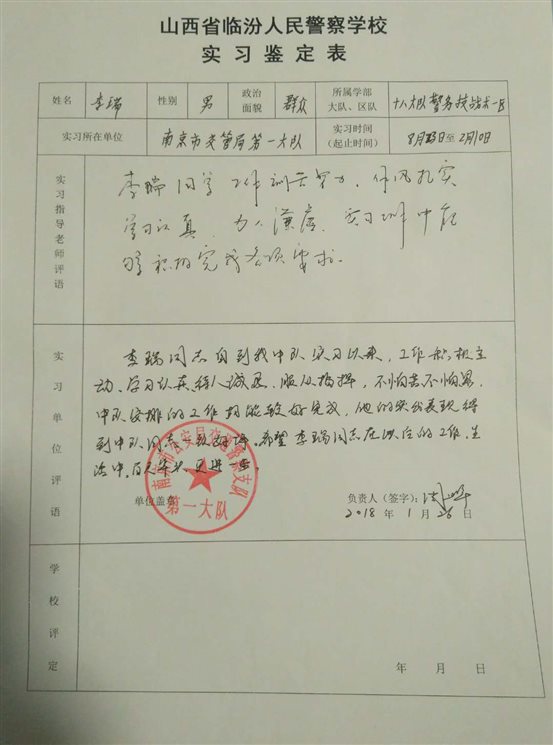 山西省临汾人民警察学校
实习鉴定表
姓名 李瑞 性别 男 政治面貌 群众 所属学部大队、区队 十八大队警务技战术一区
实习所在单位 南京市交管局第一大队 实习时间(起止时间) 8月23日至2月10日
实习指导老师评语
李瑞同学工作训练努力,作风扎实
学习认真,为人谦虚,实习训中能
够积极完成各项要求。
实习单位评语
李瑞同志自到我中队实习以来,工作积极主
动、学习认真待人诚恳、服从指挥,不怕苦不怕累,
中队安排的工作均能较好完成,他的实习表现得
到中队同志一致好评。希望李瑞同志在以后的工作、生
活中,百尺竿头,更进一步。
单位盖章
南京市公安局交通管理支队
第一大队
负责人(签字):
2018年1月26日
学校评定
年 月 日